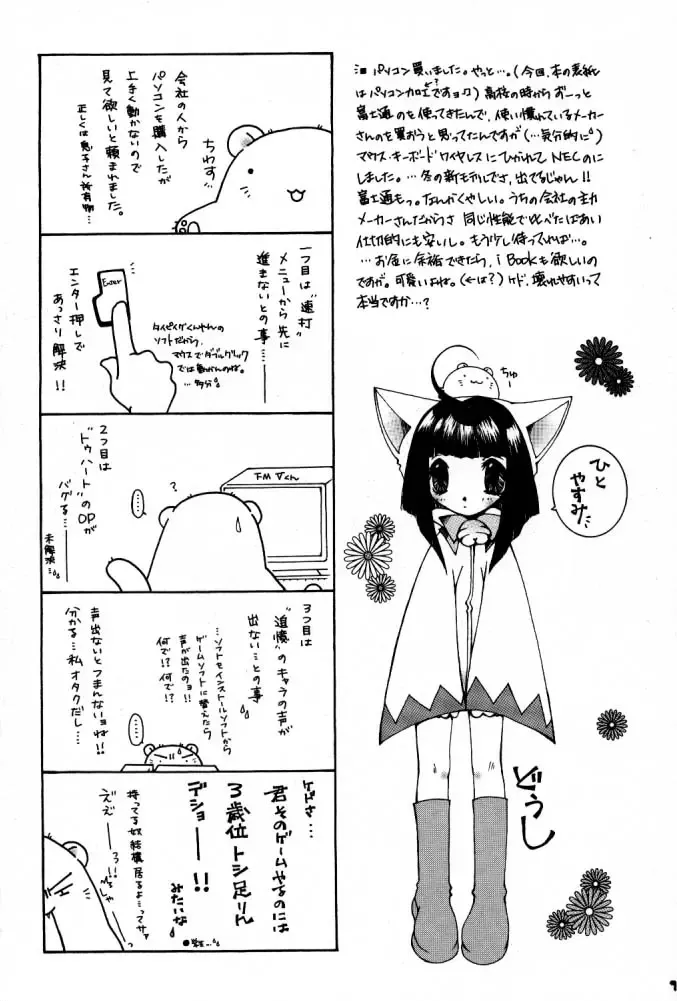 パソコン買いました。やっと…。(今回、本の表紙
はパソコン加工ですョ?)高校の時からずーっと
富士通のを使ってきたんで、使い慣れているメーカー
さんのを買おうと思ってたんですが(…気分的に)
マウス・キーボードワイヤレスにひかれてNECのに
しました。…冬の新モデルでさ、出てるじゃん!!
富士通もっ。なんかくやしい。うちの会社の主力
メーカーさんだからさ 同じ性能で比べたばあい
仕切的にも安いし。もう少し待ってれば…。
…お金に余裕できたら、i Bookも欲しいの
ですが。可愛いよね。(←は?)ケド、壊れやすいって
本当ですか…?
会社の人から
パソコンを購入したが
上手く動かないので
見て欲しいと頼まれました。
正しくは息子さん所有物…
ちわす
1つ目は"連打"
メニューから先に
進まないとの事……
Enter
エンター押しで
あっさり解決!!
タイピングくんやんの
ソフトだから、
マウスでダブルクリック
では動かんのね。
…多分
2つ目は
"トゥハート"の
OPが
バグる…
未解決…
……
?
FMVくん
3つ目は
"追憶"のキャラの声が
出ない…との事
…ソフトをインストールソフトから
ゲームソフトに替えたら
声が出たのョ!!
何で!?何で!?
声出ないとつまんないョね!!
分かる…私オタクだし…
……
ケドさ…
君そのゲームやるのには
3歳位トシ足りん
デショ——!!
みたいな
持ってる奴結構居るよーってサァ
ええーろ!!
ちゅー
ひと
やすみ
どうし